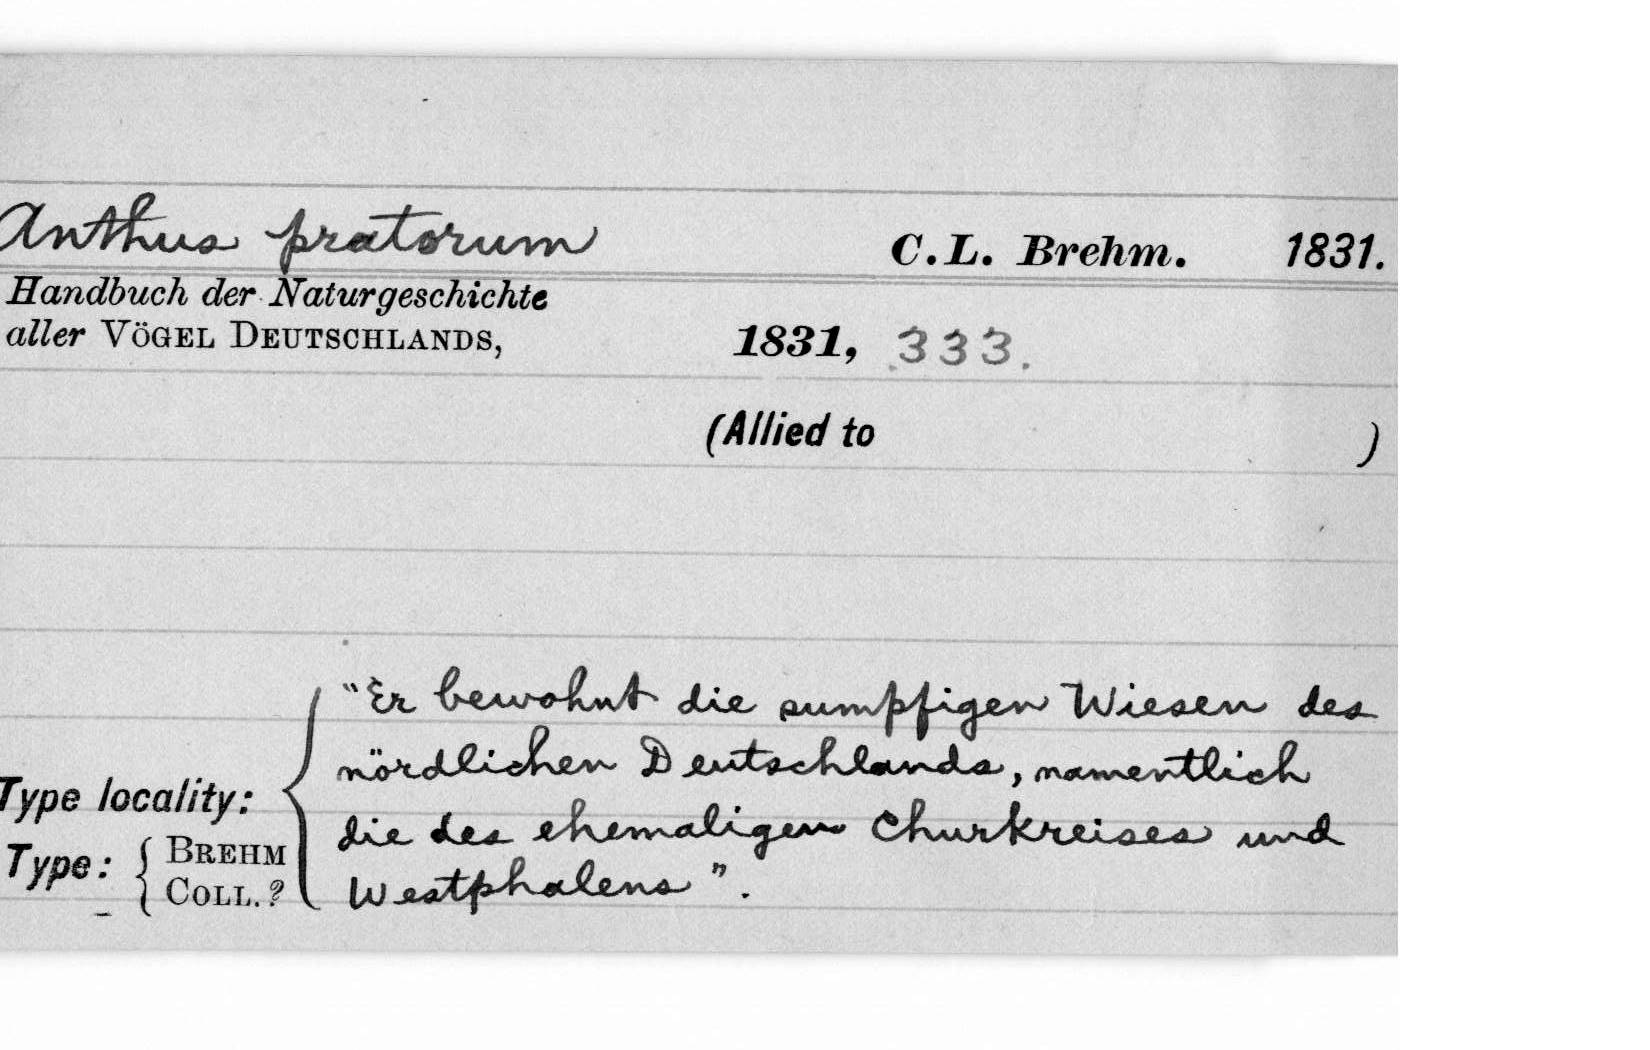 Anthus pratorum C.L. Brehm. 1831.
Handbuch der Naturgeschichte
aller VÖGEL DEUTSCHLANDS, 1831, 333.
(Allied to )
"Er bewohnt die sumpfigen Wiesen des
nördlichen Deutschlands, namentlich
Type locality: die des ehemaligen Churkreises und
Type: BREHM COLL.? Westphalens".